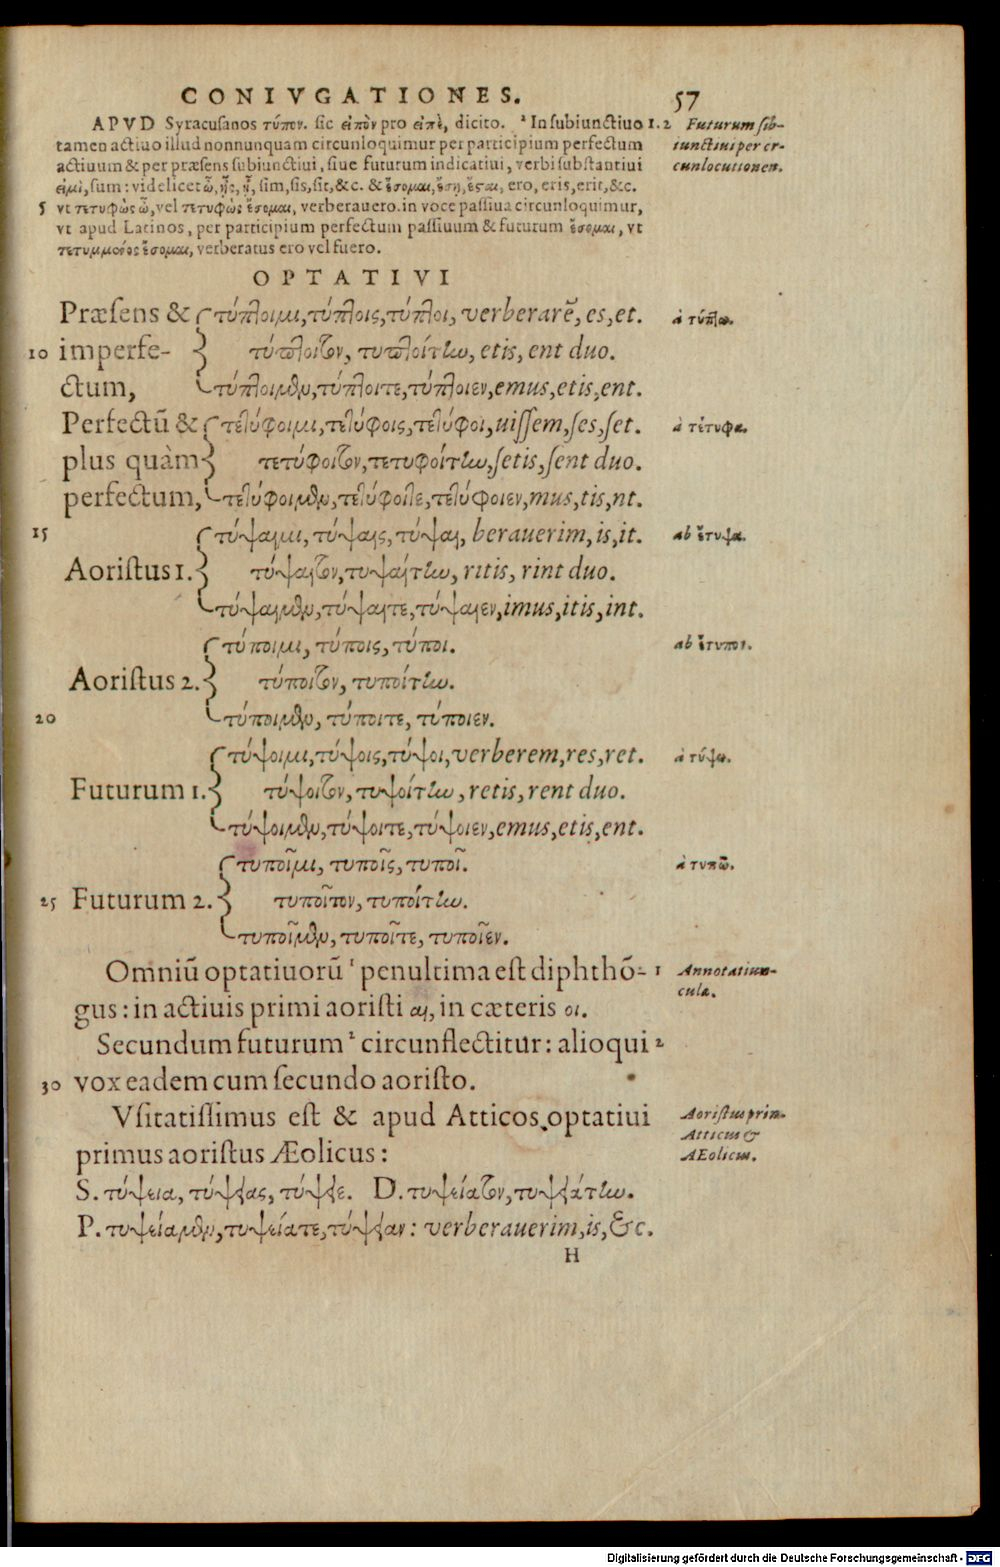 CONIVGATIONES. 57
APVD Syracusanos τύπον. sic εἰπὸν pro εἰπὲ, dicito. ² In subiunctiuo 1. 2 Futurum sub-
tamen actiuo illud nonnunquam circunloquimur per participium perfectum iunctiui per cir-
actiuum & per præsens subiunctiui, siue futurum indicatiui, verbi substantiui cunlocutionem.
εἰμὶ, sum: videlicet ὦ, ᾖς, ᾖ, sim, sis, sit, &c. & ἔσομαι, ἔσῃ, ἔσται, ero, eris, erit, &c.
5 vt τετυφὼς ὦ, vel τετυφὼς ἔσομαι, verberauero. in voce passiua circunloquimur,
vt apud Latinos, per participium perfectum passiuum & futurum ἔσομαι, vt
τετυμμένος ἔσομαι, verberatus ero vel fuero.
OPTATIVI
Præsens & τύπτοιμι, τύπτοις, τύπτοι, verberarē, es, et. à τύπτω.
10 imperfe- τύπτοιτον, τυπτοίτην, etis, ent duo.
ctum, τύπτοιμεν, τύπτοιτε, τύπτοιεν, emus, etis, ent.
Perfectū & τετύφοιμι, τετύφοις, τετύφοι, uissem, ses, set. à τέτυφα.
plus quàm τετύφοιτον, τετυφοίτην, setis, sent duo.
perfectum, τετύφοιμεν, τετύφοιτε, τετύφοιεν, mus, tis, nt.
15 τύψαιμι, τύψαις, τύψαι, berauerim, is, it. ab ἔτυψα.
Aoristus 1. τύψαιτον, τυψαίτην, ritis, rint duo.
τύψαιμεν, τύψαιτε, τύψαιεν, imus, itis, int.
τύποιμι, τύποις, τύποι. ab ἔτυπον.
Aoristus 2. τύποιτον, τυποίτην.
20 τύποιμεν, τύποιτε, τύποιεν.
τύψοιμι, τύψοις, τύψοι, verberem, res, ret. à τύψω.
Futurum 1. τύψοιτον, τυψοίτην, retis, rent duo.
τύψοιμεν, τύψοιτε, τύψοιεν, emus, etis, ent.
τυποῖμι, τυποῖς, τυποῖ. à τυπῶ.
25 Futurum 2. τυποῖτον, τυποίτην.
τυποῖμεν, τυποῖτε, τυποῖεν.
Omniū optatiuorū ¹ penultima est diphthō- 1 Annotatiun-
gus: in actiuis primi aoristi αι, in cæteris οι. culæ.
Secundum futurum ² circunflectitur: alioqui 2
30 vox eadem cum secundo aoristo.
Vsitatissimus est & apud Atticos optatiui Aoristus prim.
primus aoristus Æolicus: Atticus &
S. τύψεια, τύψειας, τύψειε. D. τυψείατον, τυψειάτην. AEolicus.
P. τυψείαμεν, τυψείατε, τύψειαν: verberauerim, is, &c.
H
Digitalisierung gefördert durch die Deutsche Forschungsgemeinschaft - DFG